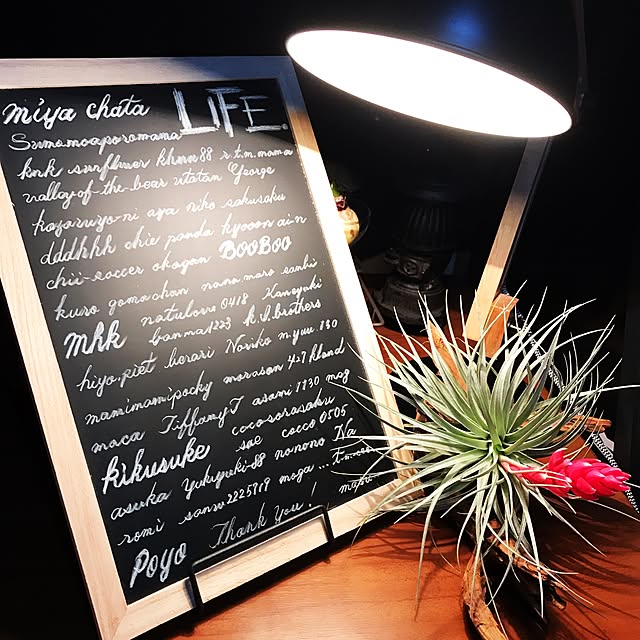 miya chata LIFE.
Sumomoaporomama
knk sunflower khnn88 r.t.m.mama
valley-of-the-bear utatan George
kazaruyo-ni aya niko sakusaku
dddhhh chie panda kyooon ain
chii-soccer okagon BOOBOO
kuro gomachan nanamaro sanbi
mhk natulove0418 Kaneyuki
banma1223 k.h.brothers
hiyo.piet berari Noriko m.yuu.130
mamimamipocky morason
maca TiffanyT asami1830 mag
kikusuke cocosorasaku
sae cocco0505
asuka Yukyuki-88 nonono Na
romi sansu2225919 moga ...
Thank You!
POYO